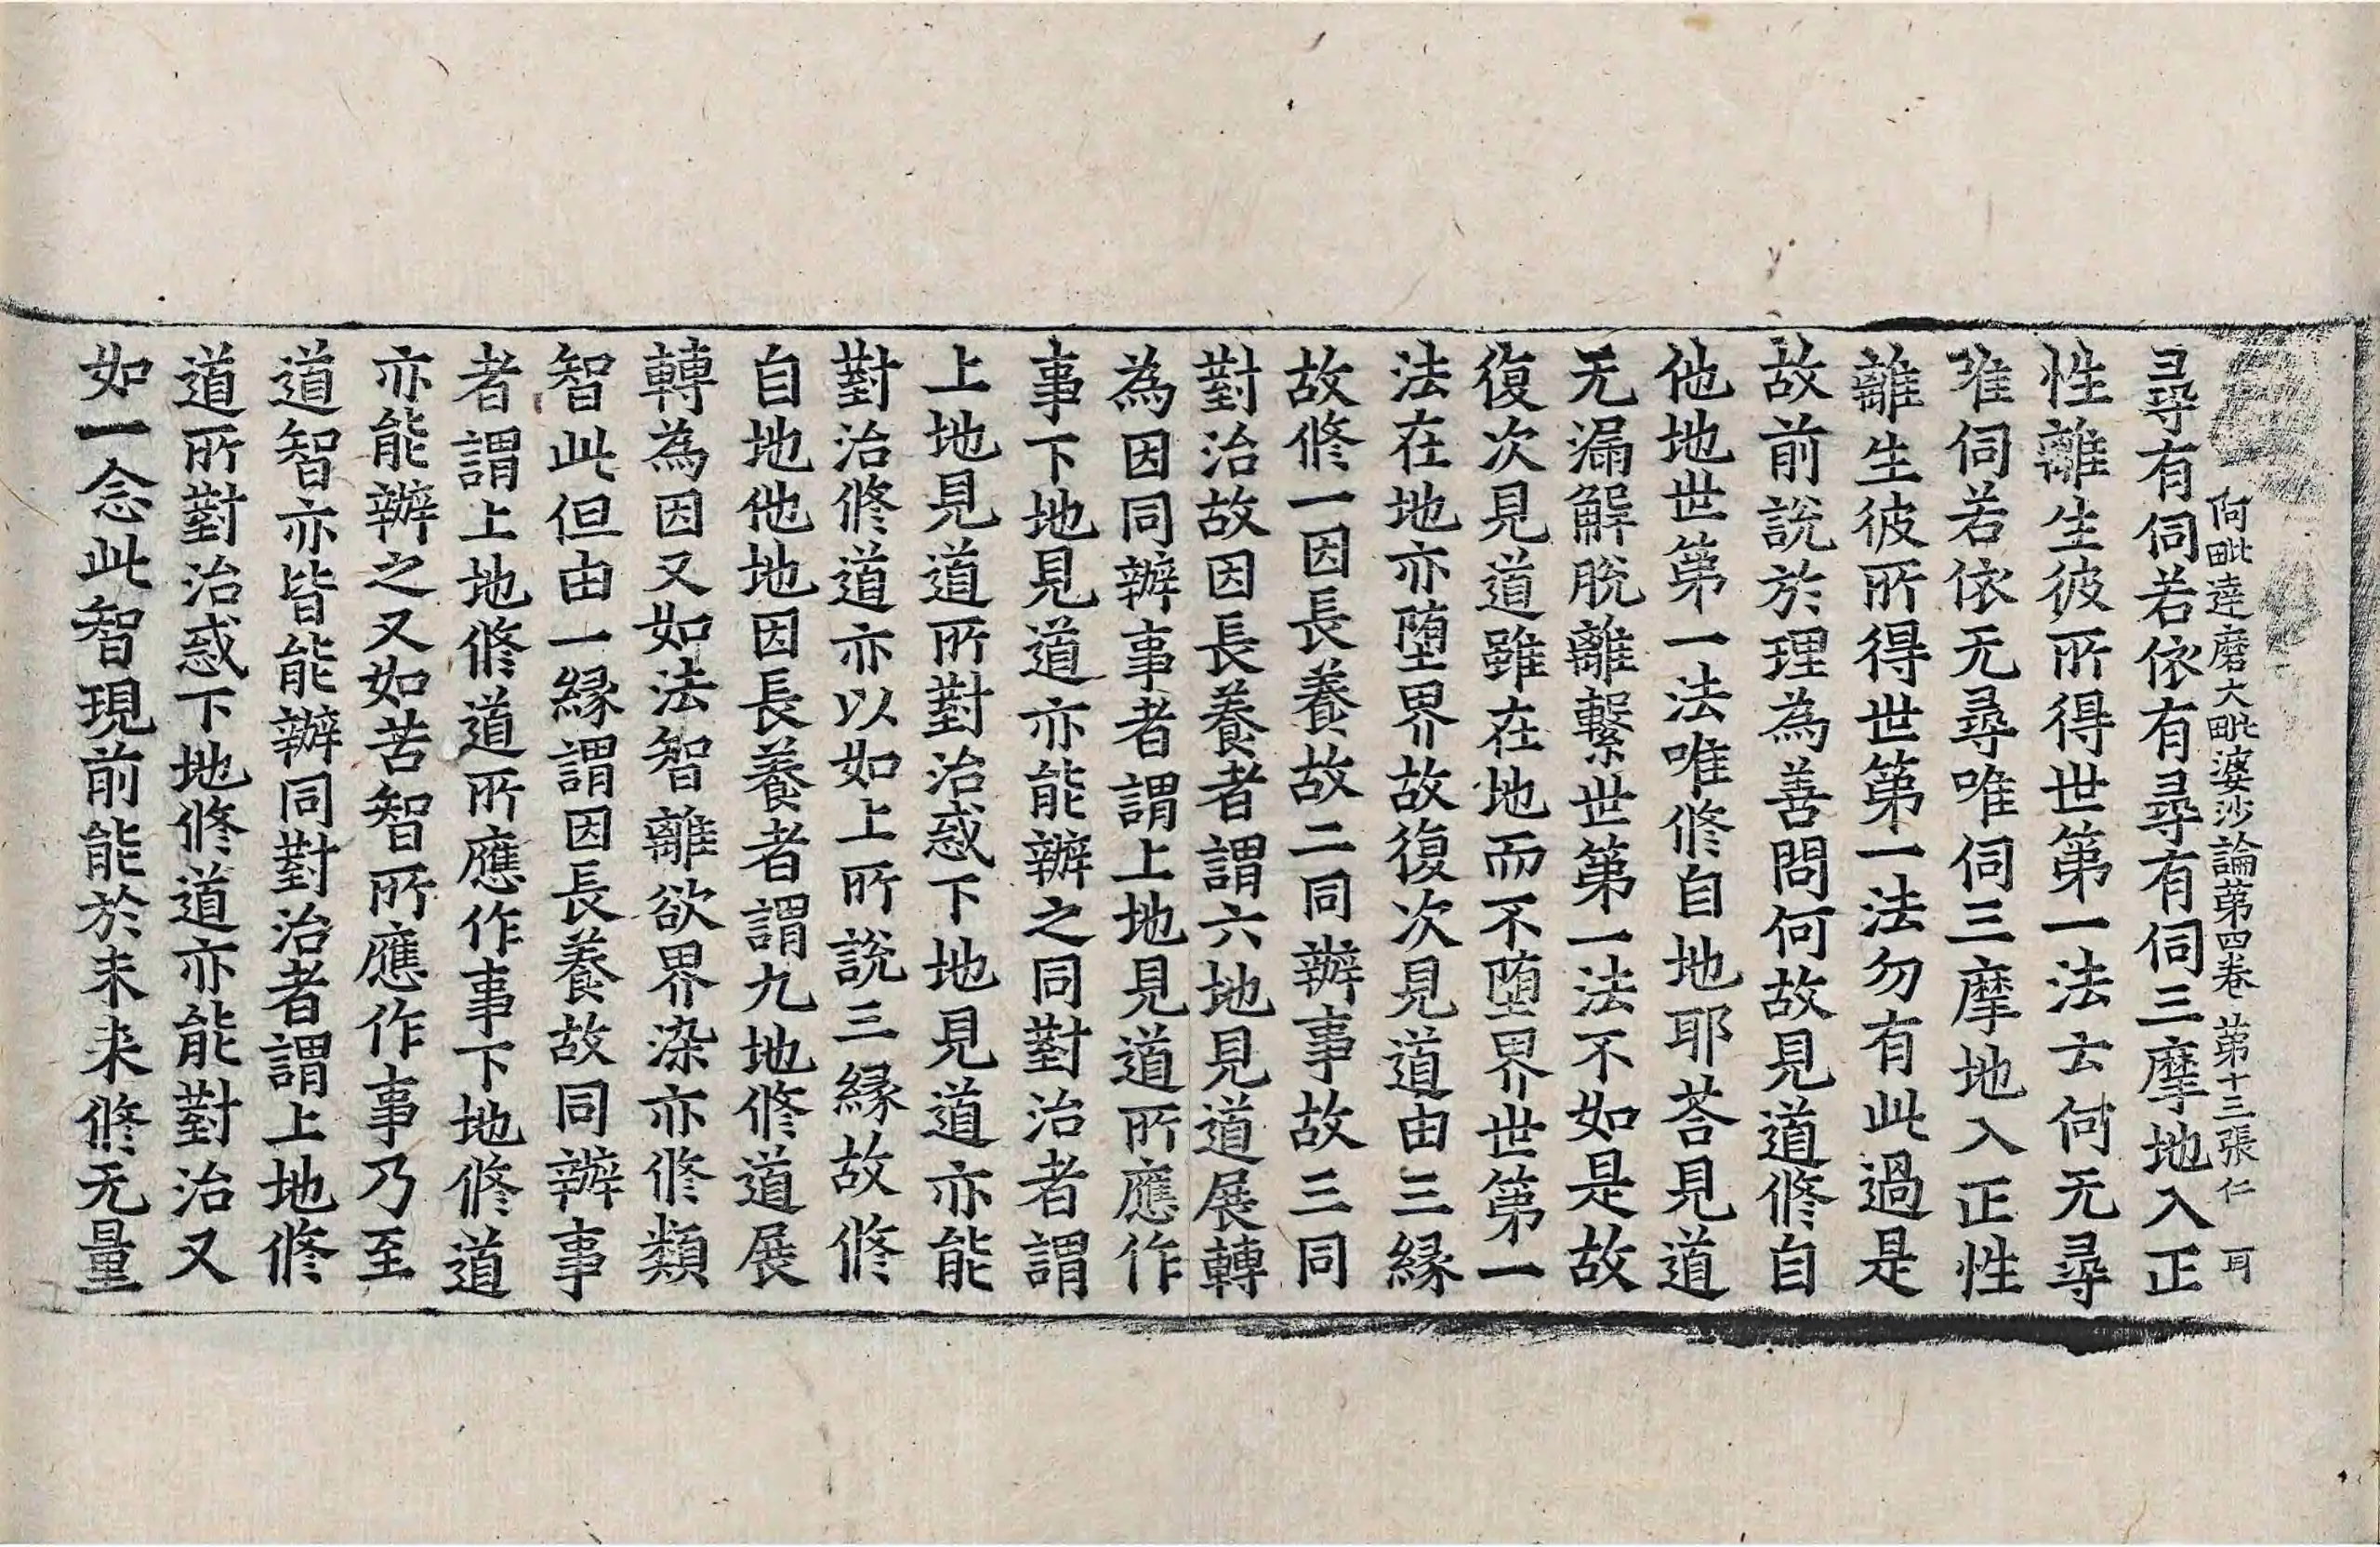 阿毗達磨大毗婆沙論第四卷 第十三張 仁 耳
尋有伺若依有尋有伺三摩地入正
性離生彼所得世第一法云何无尋
唯伺若依无尋唯伺三摩地入正性
離生彼所得世第一法勿有此過是
故前說於理為善問何故見道修自
他地世第一法唯修自地耶荅見道
无漏解脫離繫世第一法不如是故
復次見道雖在地而不堕界世第一
法在地亦堕界故復次見道由三緣
故修一因長養故二同辦事故三同
對治故因長養者謂六地見道展轉
為因同辦事者謂上地見道所應作
事下地見道亦能辦之同對治者謂
上地見道所對治惑下地見道亦能
對治修道亦以如上所說三緣故修
自地他地因長養者謂九地修道展
轉為因又如法智離欲界染亦修類
智此但由一緣謂因長養故同辦事
者謂上地修道所應作事下地修道
亦能辦之又如苦智所應作事乃至
道智亦皆能辦同對治者謂上地修
道所對治惑下地修道亦能對治又
如一念此智現前能於未来修无量